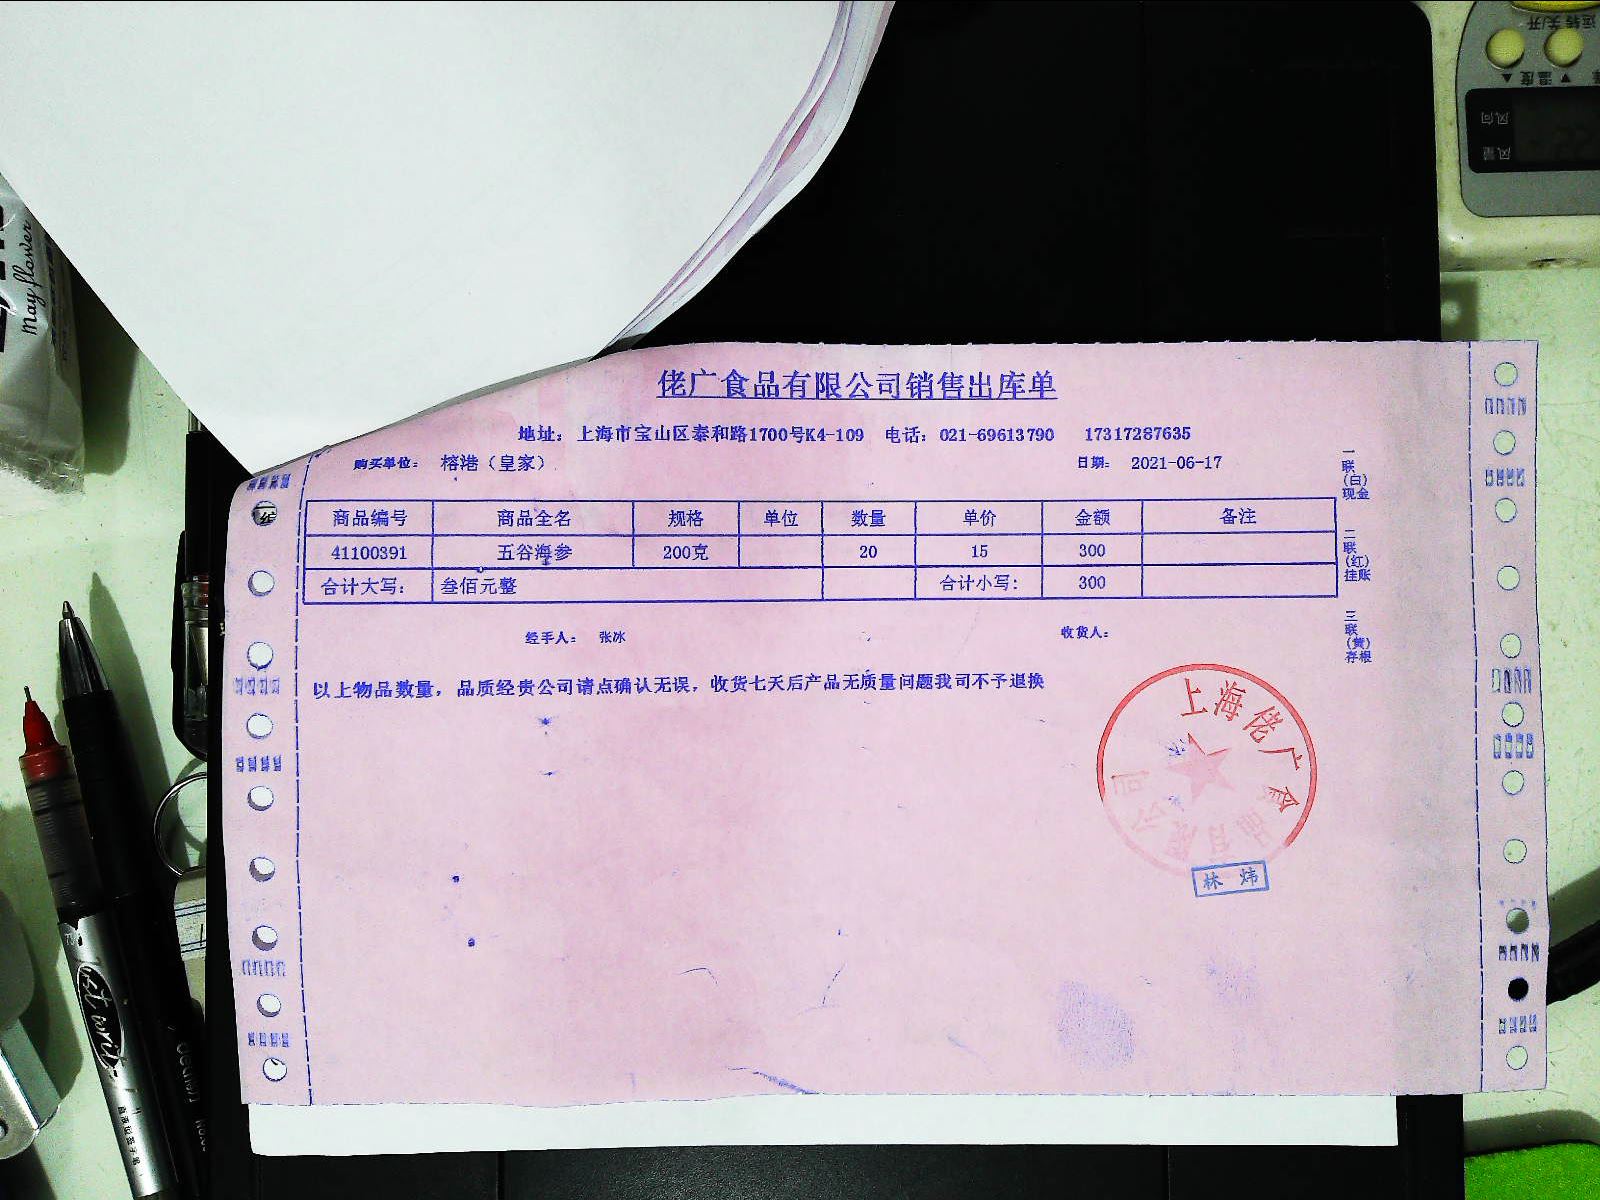 佬广食品有限公司销售出库单
地址：上海市宝山区泰和路1700号K4-109 电话：021-69613790 17317287635
购买单位：榕港（皇家） 日期：2021-06-17
商品编号 商品全名 规格 单位 数量 单价 金额 备注
41100391 五谷海参 200克 20 15 300
合计大写： 叁佰元整 合计小写: 300
经手人：张冰 收货人：
以上物品数量，品质经贵公司请点确认无误，收货七天后产品无质量问题我司不予退换
一联(白)现金
二联(红)挂账
三联(黄)存根
上海佬广食
公司
林炜
May flower
运转关开
▲ 温度 ▼
风向
风量